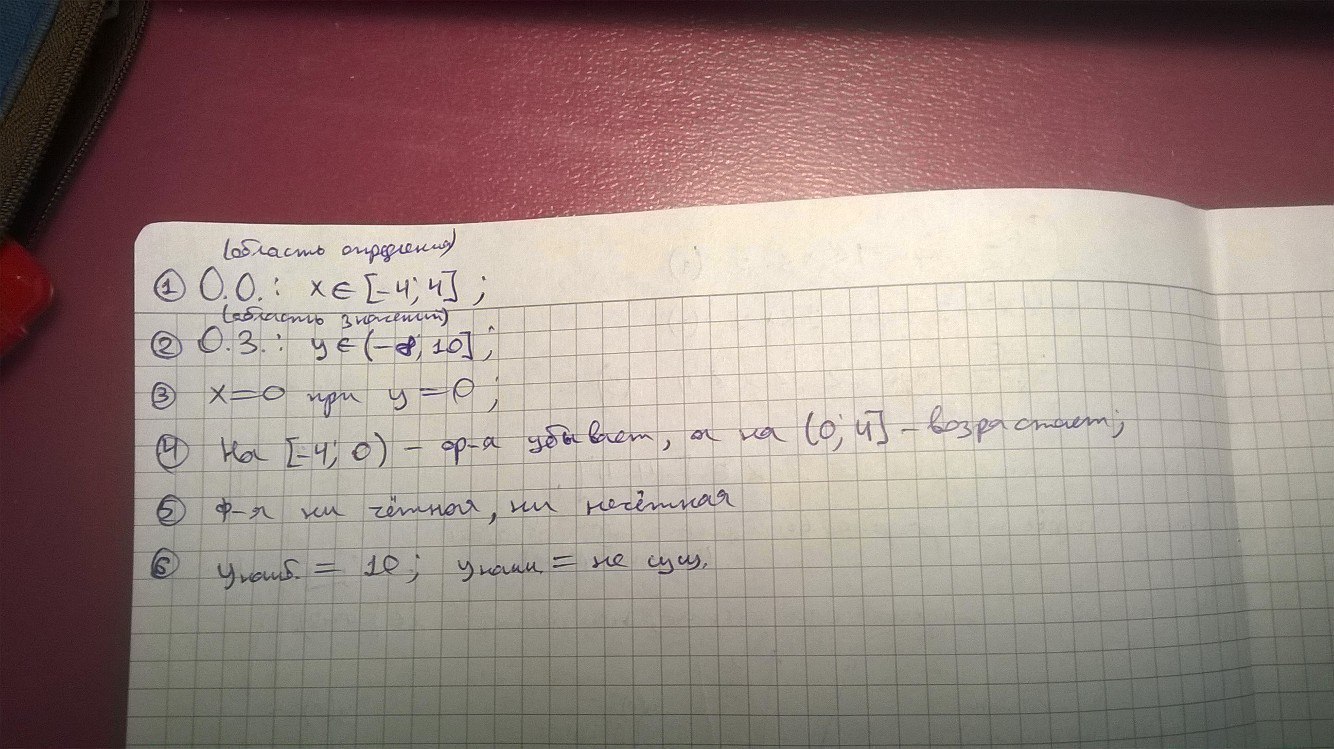 (область определения)
① О.О.: x ∈ [-4; 4] ;
(область значений)
② О.З.: y ∈ (-8; 10] ;
③ x=0 при y=0 ;
④ На [-4; 0) - ф-я убывает, а на (0; 4] - возрастает;
⑤ Ф-я ни чётная, ни нечётная
⑥ yнаиб. = 10; yнаим. = не сущ.